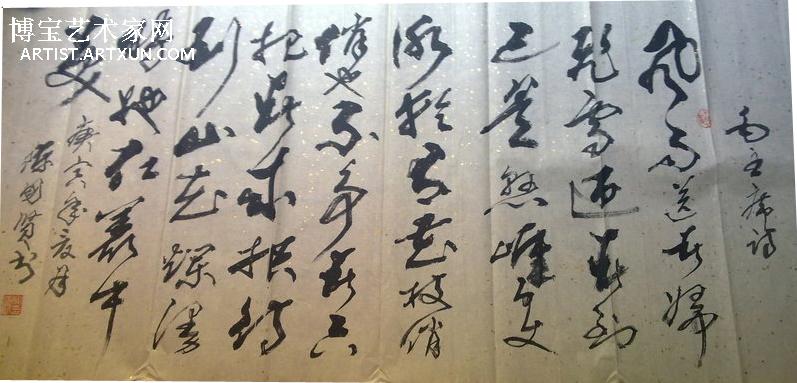 博宝艺术家网
ARTIST.ARTXUN.COM
毛主席诗
风雨送春归
飞雪迎春到
已是悬崖百丈
冰犹有花枝俏
俏也不争春只
把春来报待
到山花烂漫
时她在丛中
笑
庚寅年夏月